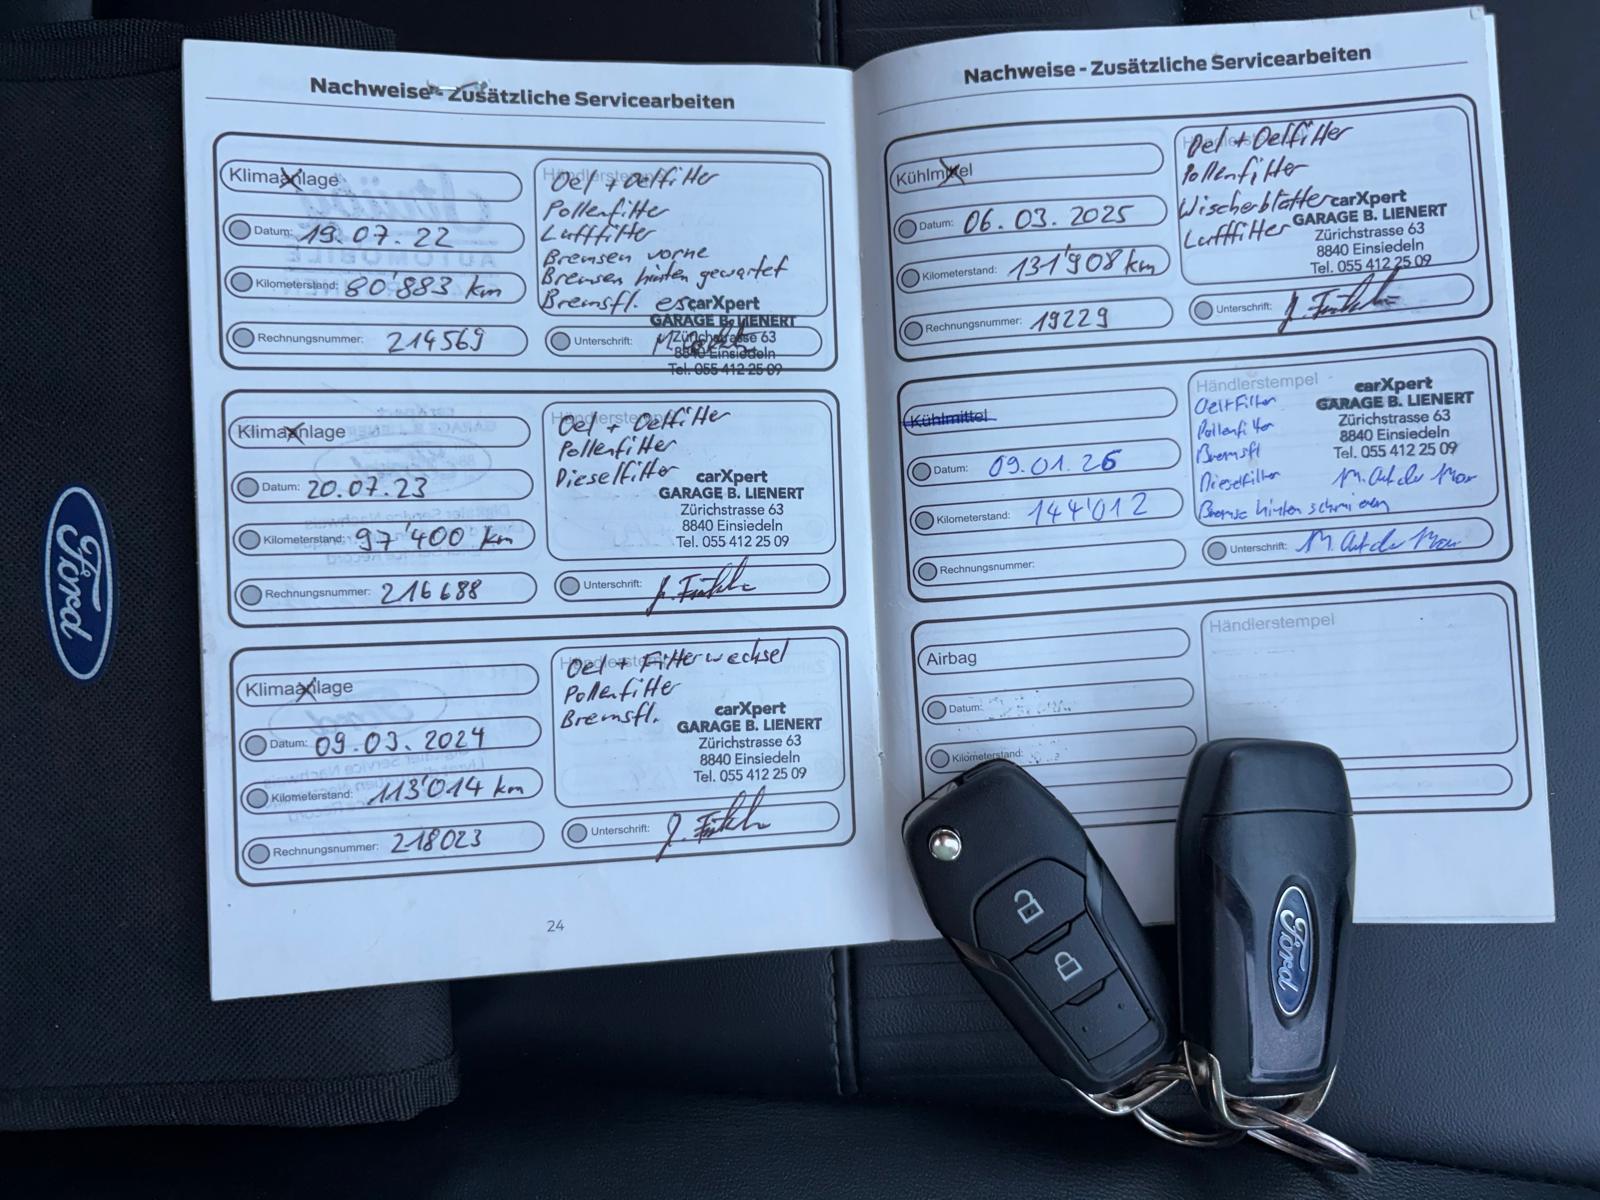 Nachweise - Zusätzliche Servicearbeiten
Klimaanlage
Datum: 19.07.22
Kilometerstand: 80'883 km
Rechnungsnummer: 214569
Händlerstempel
Oel + Oelfilter
Pollenfilter
Luftfilter
Bremsen vorne
Bremsen hinten gewartet
Bremsfl.
carXpert
GARAGE B. LIENERT
Zürichstrasse 63
8840 Einsiedeln
Tel. 055 412 25 09
Unterschrift:
Klimaanlage
Datum: 20.07.23
Kilometerstand: 97'400 km
Rechnungsnummer: 216688
Händlerstempel
Oel + Oelfilter
Pollenfilter
Dieselfilter
carXpert
GARAGE B. LIENERT
Zürichstrasse 63
8840 Einsiedeln
Tel. 055 412 25 09
Unterschrift:
Klimaanlage
Datum: 09.03.2024
Kilometerstand: 113'014 km
Rechnungsnummer: 218023
Händlerstempel
Oel + Filterwechsel
Pollenfilter
Bremsfl.
carXpert
GARAGE B. LIENERT
Zürichstrasse 63
8840 Einsiedeln
Tel. 055 412 25 09
Unterschrift:
24
Nachweise - Zusätzliche Servicearbeiten
Kühlmittel
Datum: 06.03.2025
Kilometerstand: 131'908 km
Rechnungsnummer: 19229
Händlerstempel
Oel + Oelfilter
Pollenfilter
Wischerblätter
Luftfilter
carXpert
GARAGE B. LIENERT
Zürichstrasse 63
8840 Einsiedeln
Tel. 055 412 25 09
Unterschrift:
Kühlmittel
Datum: 09.01.26
Kilometerstand: 144'012
Rechnungsnummer:
Händlerstempel
Oel+Filter
Pollenfilter
Bremsfl
Dieselfilter
Bremse hinten schmieren
carXpert
GARAGE B. LIENERT
Zürichstrasse 63
8840 Einsiedeln
Tel. 055 412 25 09
Unterschrift:
Airbag
Datum:
Kilometerstand:
Händlerstempel
Ford
Ford